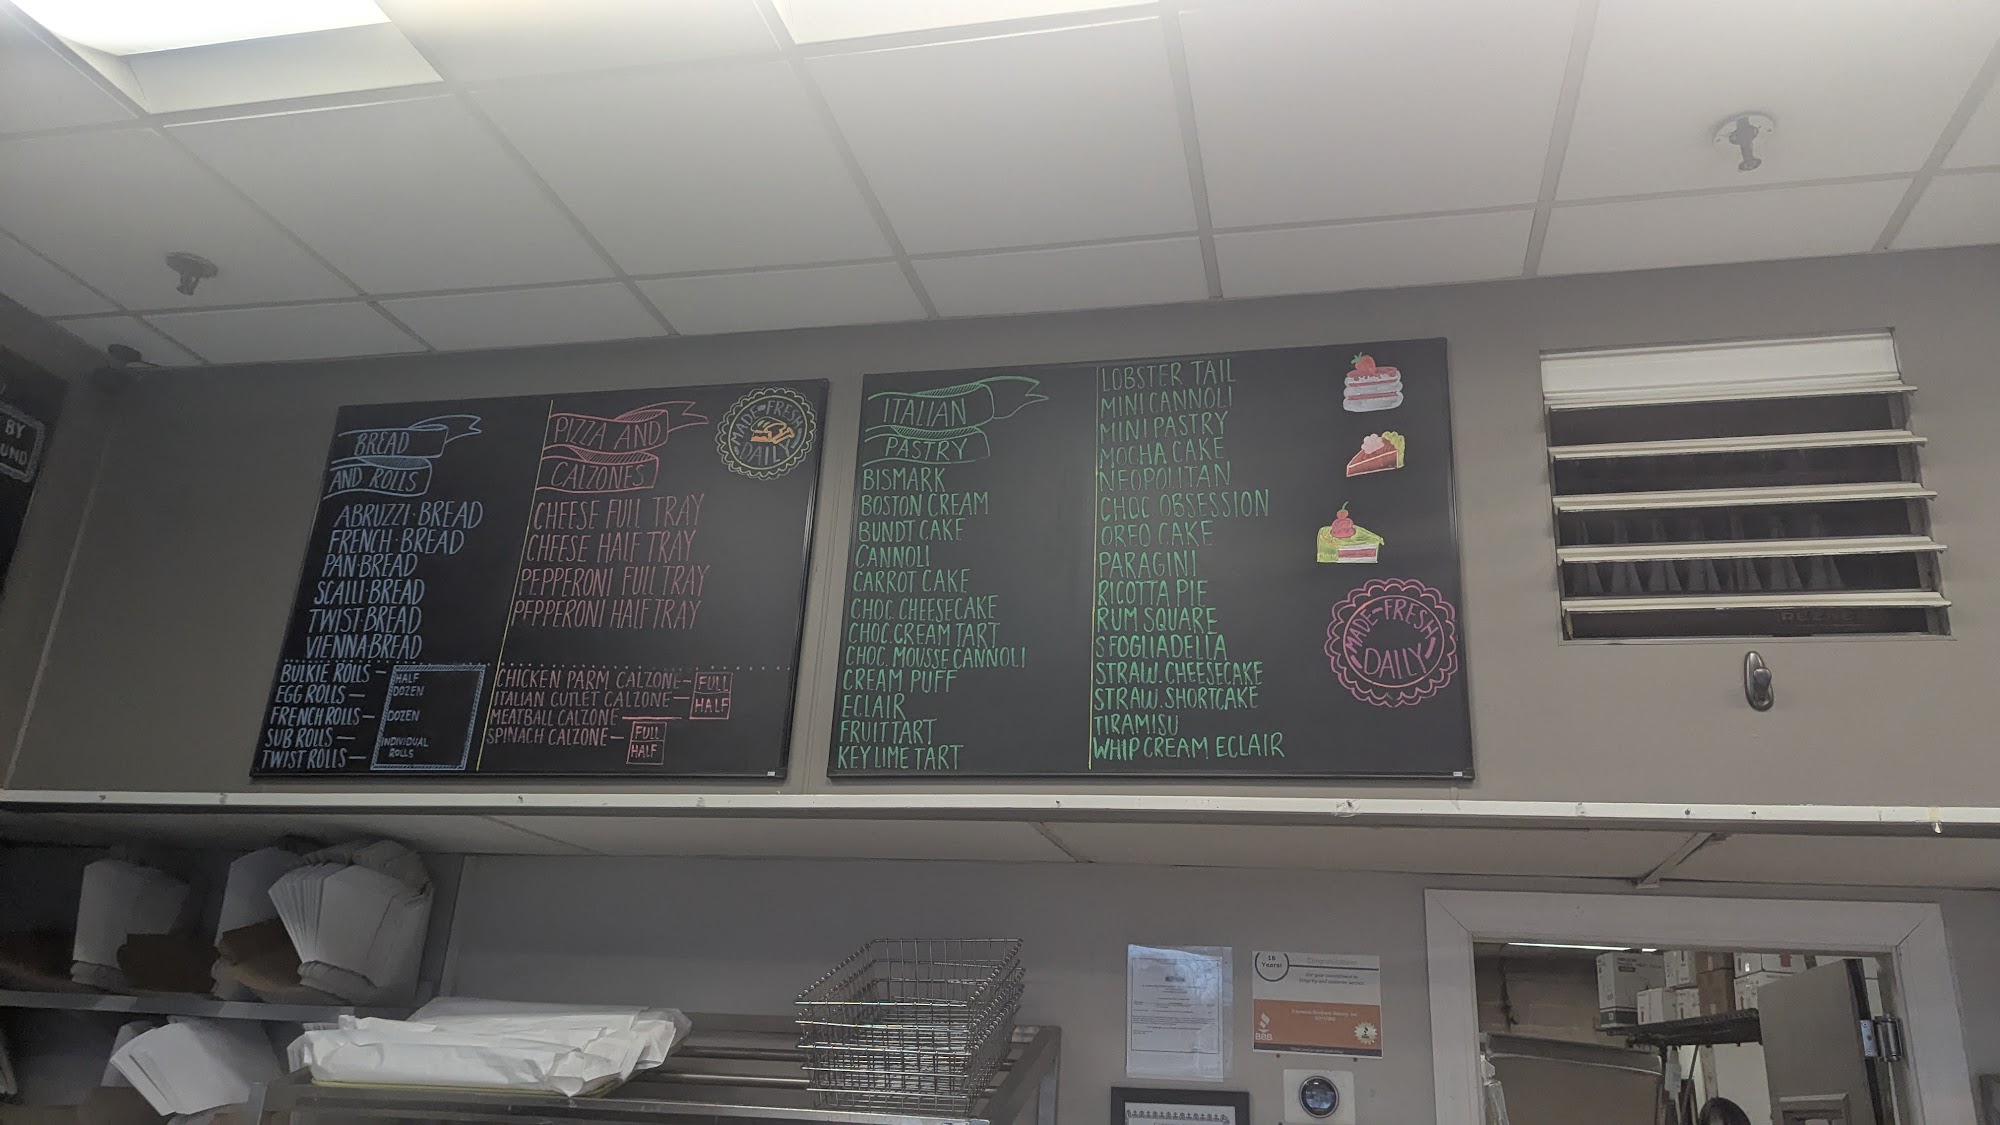 BY
UND
BREAD
AND ROLLS
ABRUZZI·BREAD
FRENCH·BREAD
PAN·BREAD
SCALLI·BREAD
TWIST·BREAD
VIENNA·BREAD
BULKIE ROLLS —
EGG ROLLS —
FRENCH ROLLS —
SUB ROLLS —
TWIST ROLLS —
HALF
DOZEN
DOZEN
INDIVIDUAL
ROLLS
PIZZA AND
CALZONES
CHEESE FULL TRAY
CHEESE HALF TRAY
PEPPERONI FULL TRAY
PEPPERONI HALF TRAY
CHICKEN PARM CALZONE —
ITALIAN CUTLET CALZONE —
FULL
HALF
MEATBALL CALZONE
SPINACH CALZONE —
FULL
HALF
MADE-FRESH
DAILY
ITALIAN
PASTRY
BISMARK
BOSTON CREAM
BUNDT CAKE
CANNOLI
CARROT CAKE
CHOC. CHEESECAKE
CHOC. CREAM TART
CHOC. MOUSSE CANNOLI
CREAM PUFF
ECLAIR
FRUIT TART
KEY LIME TART
LOBSTER TAIL
MINI CANNOLI
MINI PASTRY
MOCHA CAKE
NEOPOLITAN
CHOC OBSESSION
OREO CAKE
PARAGINI
RICOTTA PIE
RUM SQUARE
SFOGLIADELLA
STRAW. CHEESECAKE
STRAW. SHORTCAKE
TIRAMISU
WHIP CREAM ECLAIR
MADE-FRESH
DAILY
16
Years!
Congratulations
BBB